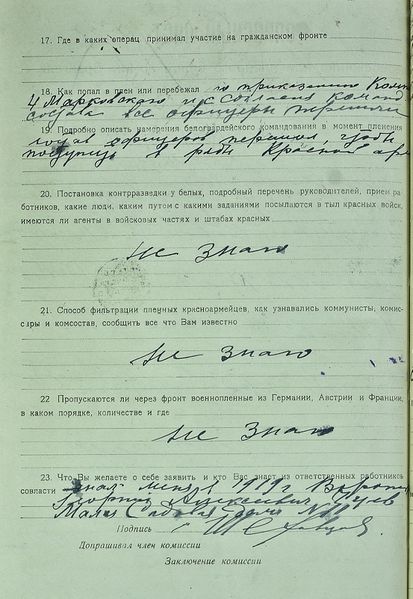 17. Где в каких операц принимал участие на гражданском фронте
18. Как попал в плен или перебежал по приказанию
4 Марковского и с согласия команд
состава все офицеры перешли
19. Подробно описать намерения белогвардейского командования в момент пленения
офицеров перешли, чтобы
поступить в ряды Красной
20. Постановка контрразведки у белых, подробный перечень руководителей, прием ра-
ботников, какие люди, каким путем с какими заданиями посылаются в тыл красных войск,
имеются ли агенты в войсковых частях и штабах красных
не знаю
21. Способ фильтрации пленных красноармейцев, как узнавались коммунисты, комис-
сары и комсостав, сообщить все что Вам известно
не знаю
22 Пропускаются ли через фронт военнопленные из Германии, Австрии и Франции,
в каком порядке, количестве и где
не знаю
23. Что Вы желаете о себе заявить и кто Вас знает из ответственных работников
совласти знал меня 1919 г
Алексеевич
Малая Садовая
Подпись
Допрашивал член комиссии
Заключение комиссии